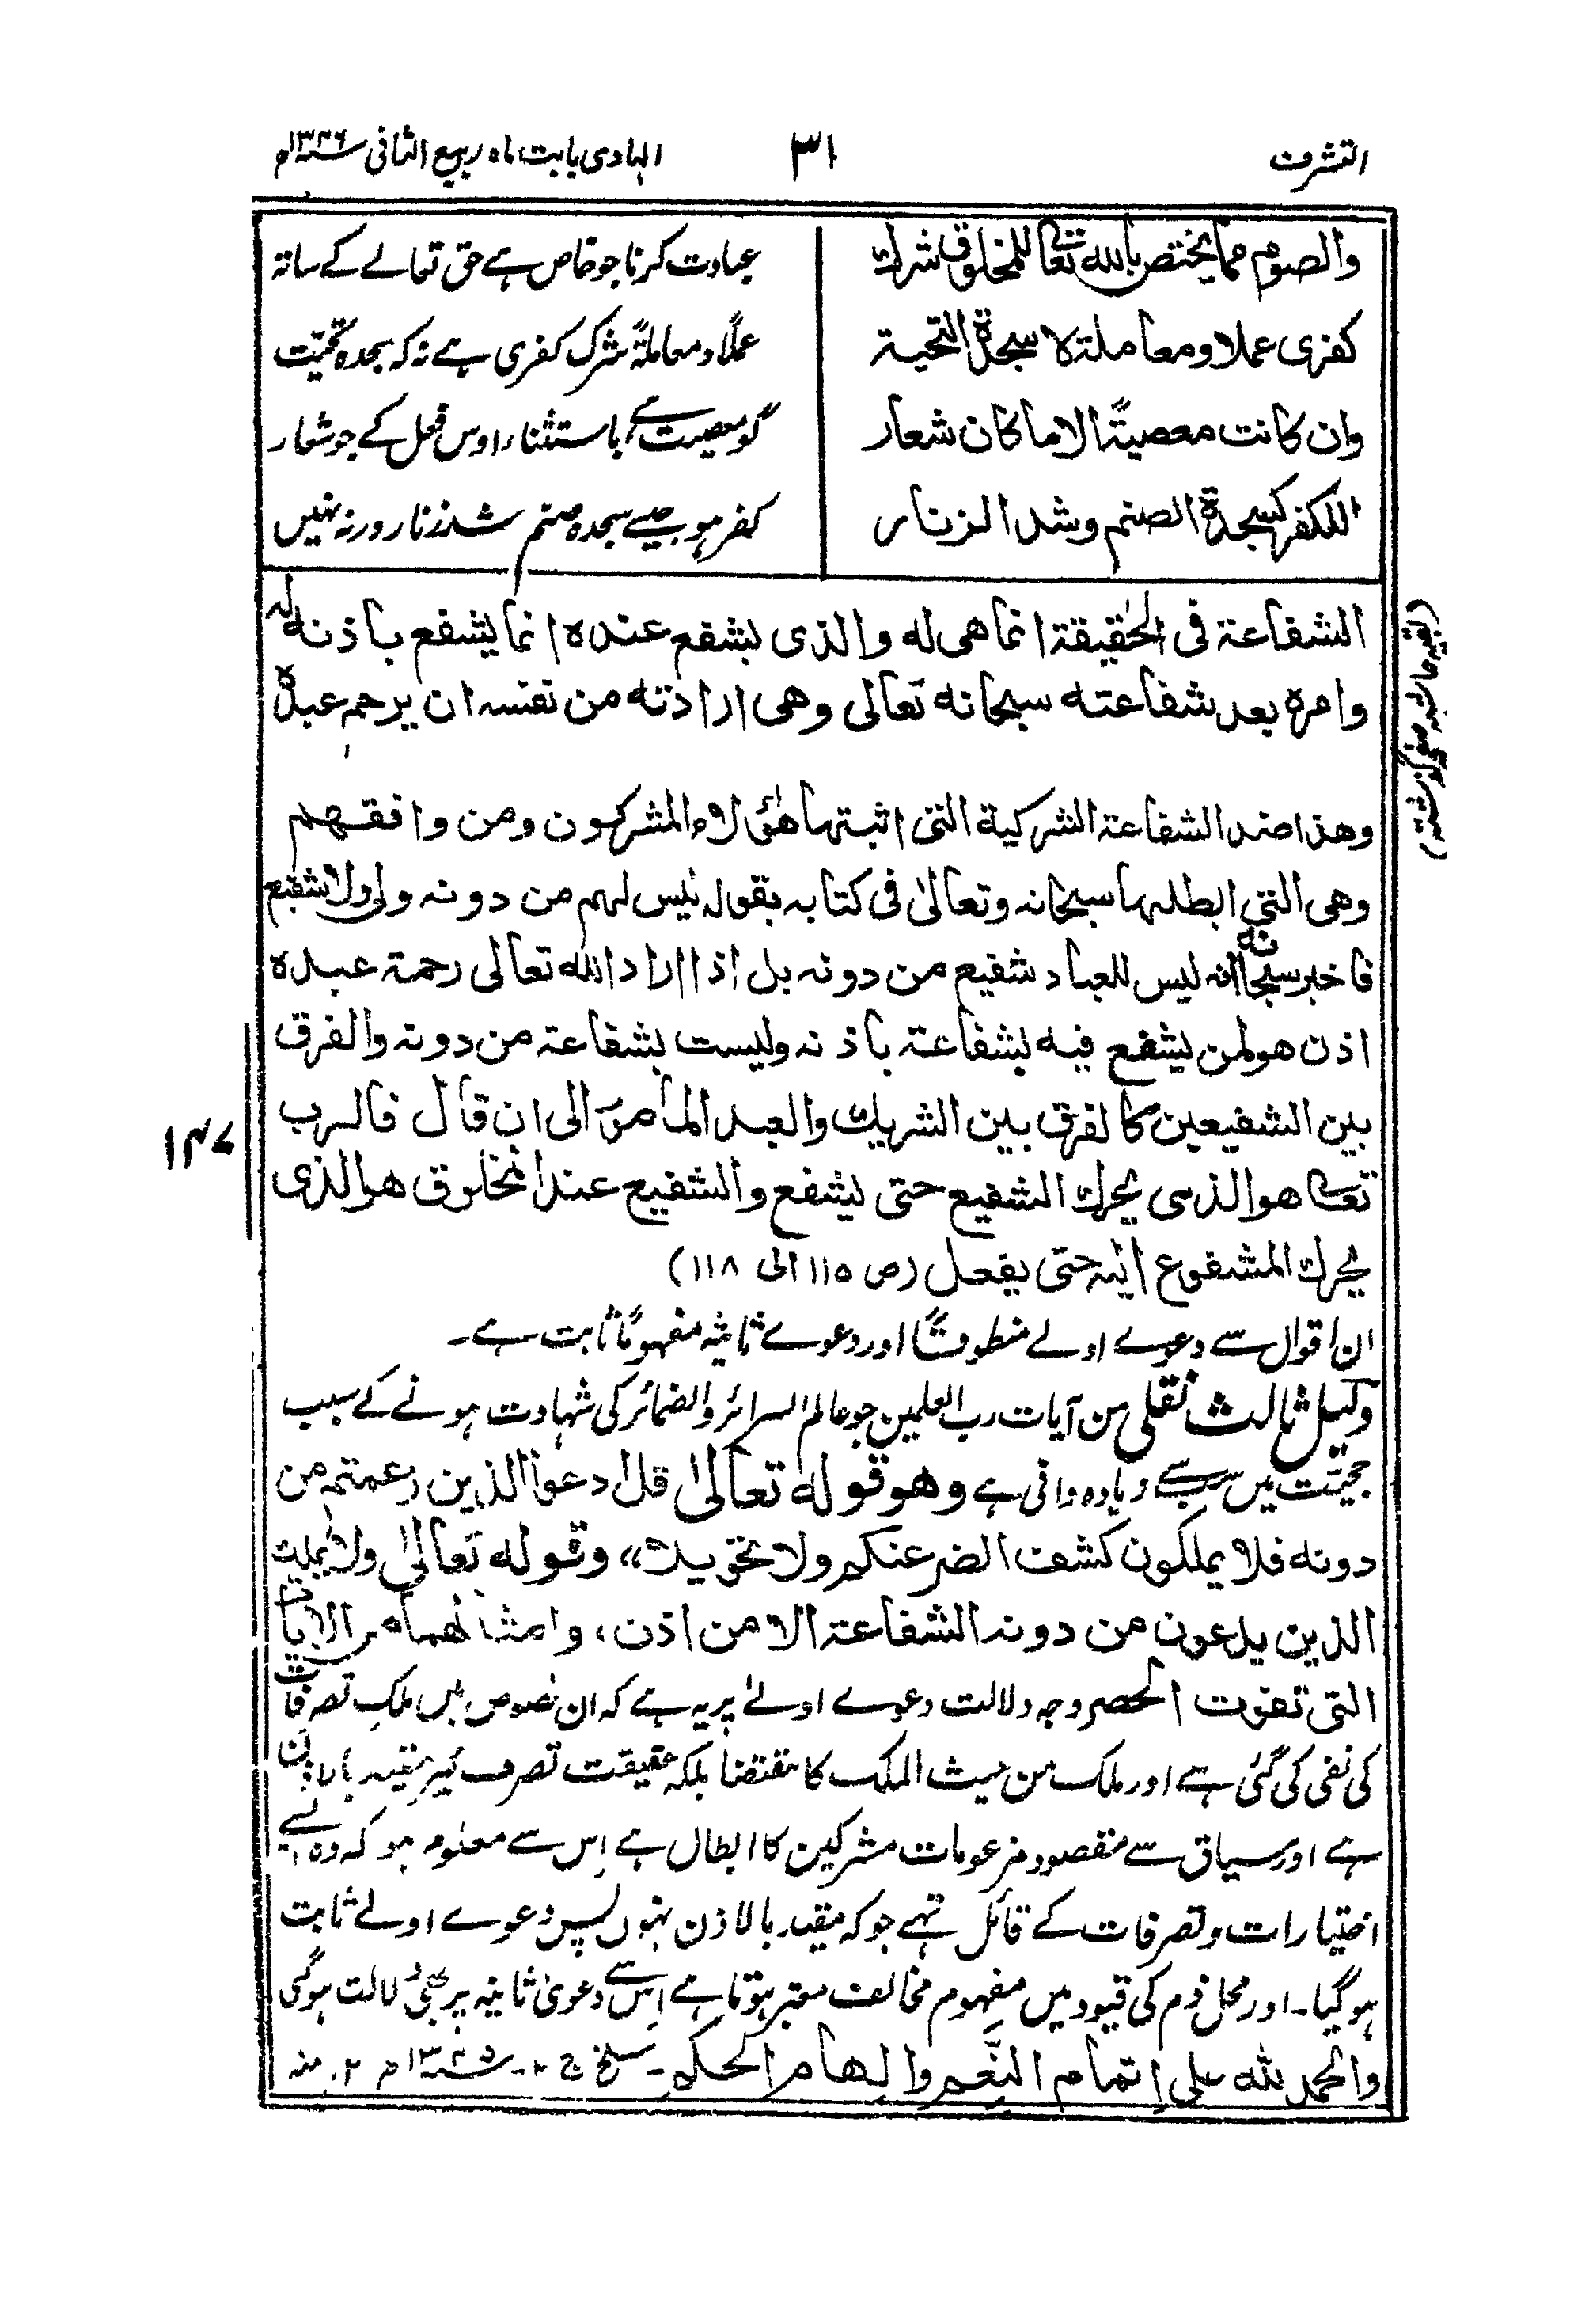 التشرف
۳۱
الہادی بابت ماہ ربیع الثانی ۱۳۴۶ھ
والصوم مما یختص باللہ تعالیٰ للمخلوق شرك
کفری عملا ومعاملۃ لا سجدۃ التحیۃ
وان کانت معصیۃً الا ما کان شعار
للکفر کسجدۃ الصنم وشد الزنار
عبادت کرنا جو خاص ہے حق تعالےٰ کے ساتھ
عملاً ومعاملۃً شرک کفری ہے نہ کہ سجدہ تحیّت
گو معصیت ہے باستثناء اوس فعل کے جو شعار
کفر ہو جیسے سجدہ صنم شد زنار ورنہ نہیں
(بقیہ حاشیہ صفحہ گزشتہ)
الشفاعۃ فی الحقیقۃ انما ھی لہ والذی یشفع عندہ انما یشفع باذنہ لہ
وامرہ بعد شفاعتہ سبحانہ تعالی وھی ارادتہ من نفسہ ان یرحم عبدہ
وھذا ضد الشفاعۃ الشرکیۃ التی اثبتہا ھؤلاء المشرکون ومن وافقہم
وھی التی ابطلہا سبحانہ وتعالیٰ فی کتابہ بقولہ لیس لہم من دونہ ولی ولا شفیع
فاخبر سبحانہ انہ لیس للعباد شفیع من دونہ بل اذا اراد اللہ تعالی رحمۃ عبدہ
اذن ھو لمن یشفع فیہ بشفاعتہ باذنہ ولیست بشفاعۃ من دونہ والفرق
بین الشفیعین کالفرق بین الشریك والعبد المامور الی ان قال فالرب
تعالیٰ ھو الذی یحرك الشفیع حتی یشفع والشفیع عند المخلوق ھو الذی
یحرك المشفوع الیہ حتی یفعل (ص ۱۱۵ الی ۱۱۸)
۱۴۷
ان اقوال سے دعوے اولے منطوقاً اور دعوے ثانیہ مفہوماً ثابت ہے۔
دلیل ثالث نقلی من آیات رب العلمین جو عالم السرائر والضمائر کی شہادت ہونے کے سبب
حجیّت میں سب سے زیادہ وافی ہے وھو قولہ تعالیٰ قل ادعوا الذین زعمتم من
دونہ فلا یملکون کشف الضر عنکم ولا تحویلا،، وقولہ تعالیٰ ولا یملك
الذین یدعون من دونہ الشفاعۃ الا من اذن، وامثالھما من الایات
التی تفوت الحصر وجہ دلالت دعوے اولےٰ پر یہ ہے کہ ان نصوص میں ملک تصرفات
کی نفی کی گئی ہے اور ملک من حیث الملک کا مقتضا بلکہ حقیقت تصرف غیر مقید بالاذن
ہے اور سیاق سے مقصود مزعومات مشرکین کا ابطال ہے اِس سے معلوم ہو کہ وہ ایسے
اختیارات وتصرفات کے قائل تہے جو کہ مقید بالاذن نہوں پس دعوے اولےٰ ثابت
ہو گیا۔ اور محل ذم کی قیود میں مفہوم مخالف معتبر ہوتا ہے اِس سے دعویٰ ثانیہ پر بھی دلالت ہوگی
والحمد للہ علی اتمام النِّعَم والہام الحکم۔ سلخ ج ۲۔ ۱۳۴۵ھ ۱۲ منہ